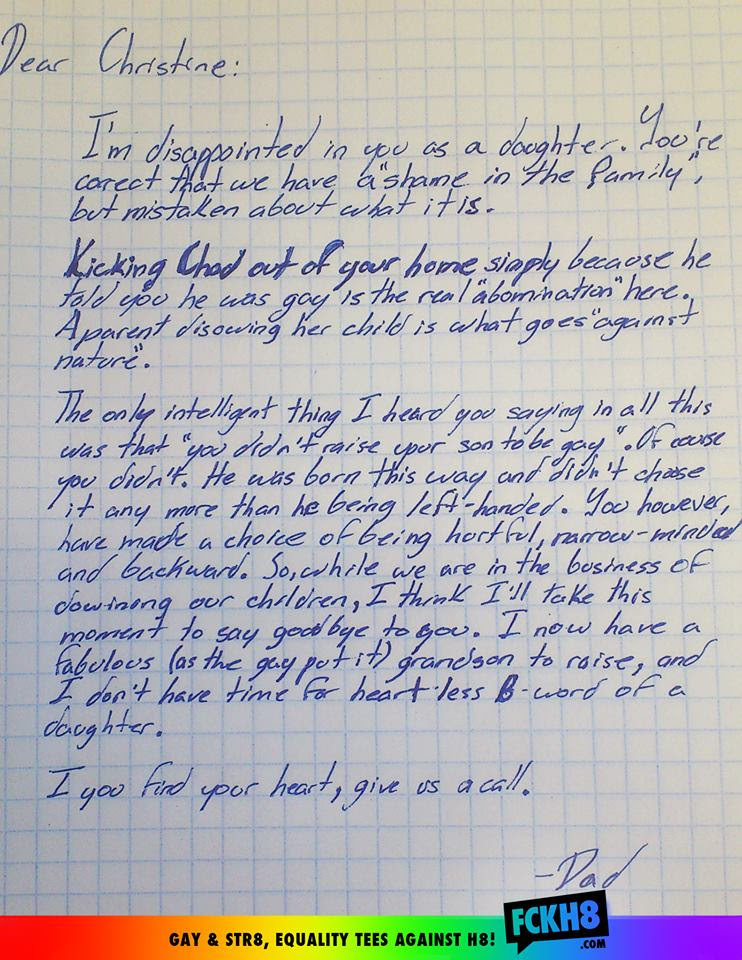 Dear Christine:
I'm disappointed in you as a daughter. You're
corect that we have a "shame in the family",
but mistaken about what it is.
Kicking Chad out of your home simply because he
told you he was gay is the real "abomination" here.
A parent disowing her child is what goes "against
nature".
The only intelligent thing I heard you saying in all this
was that "you didn't raise your son to be gay". Of course
you didn't. He was born this way and didn't choose
it any more than he being left-handed. You however,
have made a choice of being hurtful, narrow-minded
and backward. So, while we are in the business of
our children, I think I'll take this
moment to say goodbye to you. I now have a
fabulous (as the gay put it) grandson to raise, and
I don't have time for heart-less B-word of a
daughter.
I you find your heart, give us a call.
-Dad
GAY & STR8, EQUALITY TEES AGAINST H8! FCKH8
.COM